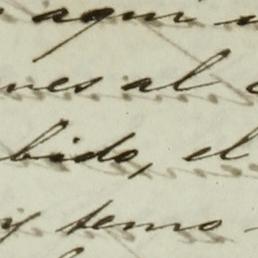 aqui
nes al
bido, el
y temo